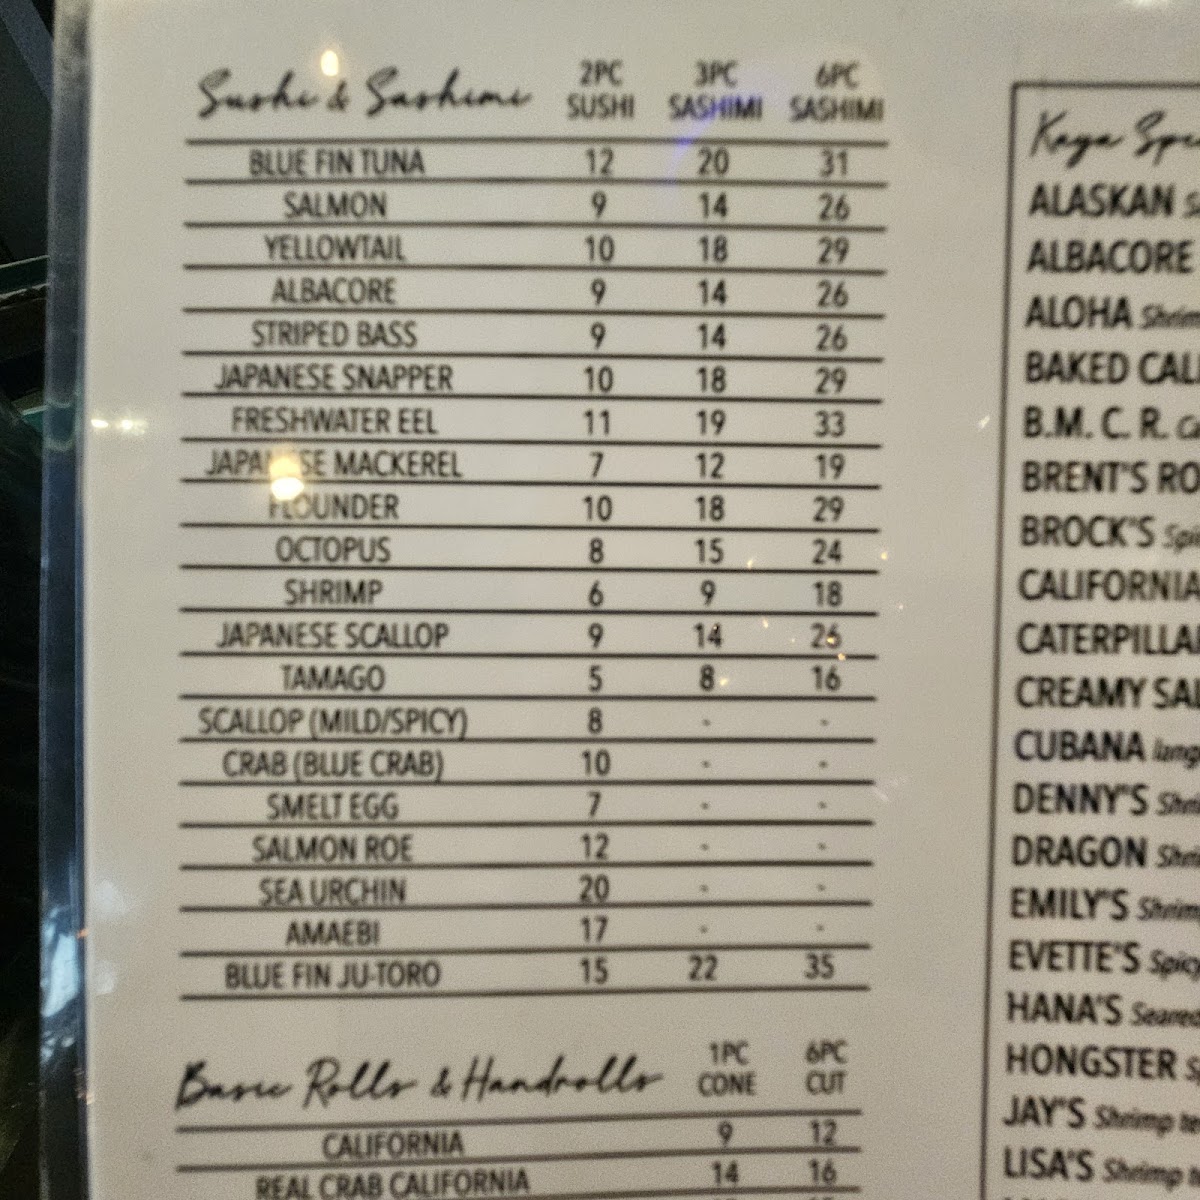 Sushi & Sashimi 2PC SUSHI 3PC SASHIMI 6PC SASHIMI
BLUE FIN TUNA 12 20 31
SALMON 9 14 26
YELLOWTAIL 10 18 29
ALBACORE 9 14 26
STRIPED BASS 9 14 26
JAPANESE SNAPPER 10 18 29
FRESHWATER EEL 11 19 33
JAPANESE MACKEREL 7 12 19
FLOUNDER 10 18 29
OCTOPUS 8 15 24
SHRIMP 6 9 18
JAPANESE SCALLOP 9 14 26
TAMAGO 5 8 16
SCALLOP (MILD/SPICY) 8 - -
CRAB (BLUE CRAB) 10 - -
SMELT EGG 7 - -
SALMON ROE 12 - -
SEA URCHIN 20 - -
AMAEBI 17 - -
BLUE FIN JU-TORO 15 22 35
Basic Rolls & Handrolls 1PC CONE 6PC CUT
CALIFORNIA 9 12
REAL CRAB CALIFORNIA 14 16
Kaya Spe
ALASKAN
ALBACORE
ALOHA Shrim
BAKED CAL
B.M. C. R.
BRENT'S RO
BROCK'S
CALIFORNIA
CATERPILLA
CREAMY SAL
CUBANA lang
DENNY'S Shri
DRAGON Shri
EMILY'S Shrim
EVETTE'S Spicy
HANA'S Seared
HONGSTER
JAY'S Shrimp te
LISA'S Shrimp